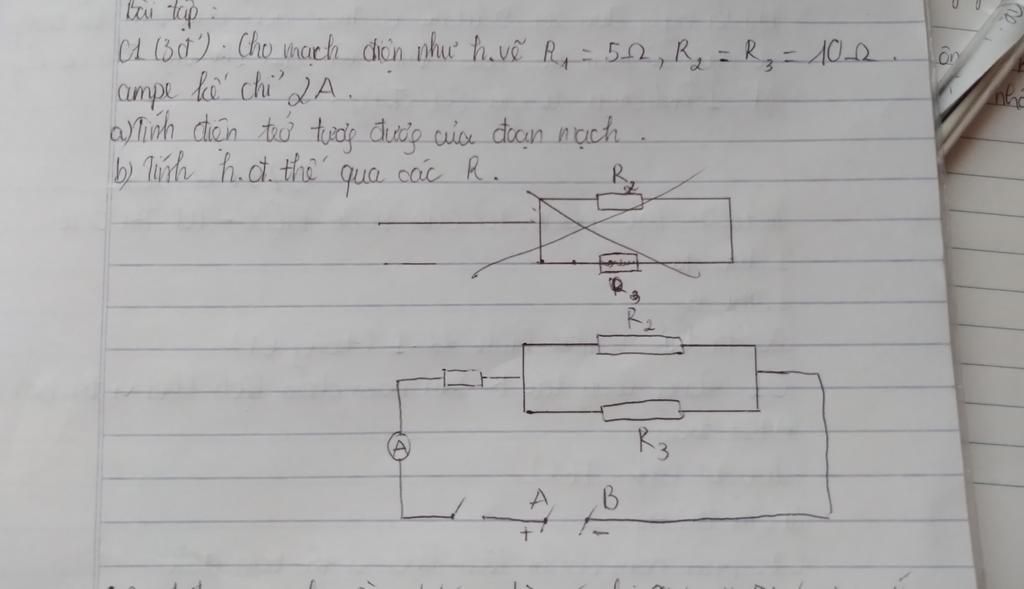 Bài tập :
C1 (3đ) : Cho mạch điện như h.vẽ R₁ = 5Ω, R₂ = R₃ = 10Ω .
ampe kế chỉ 2A .
a) Tính điện trở tương đương của đoạn mạch .
b) Tính h.đ.thế qua các R .
R₂
R₃
R₂
R₃
A
A B
+ -